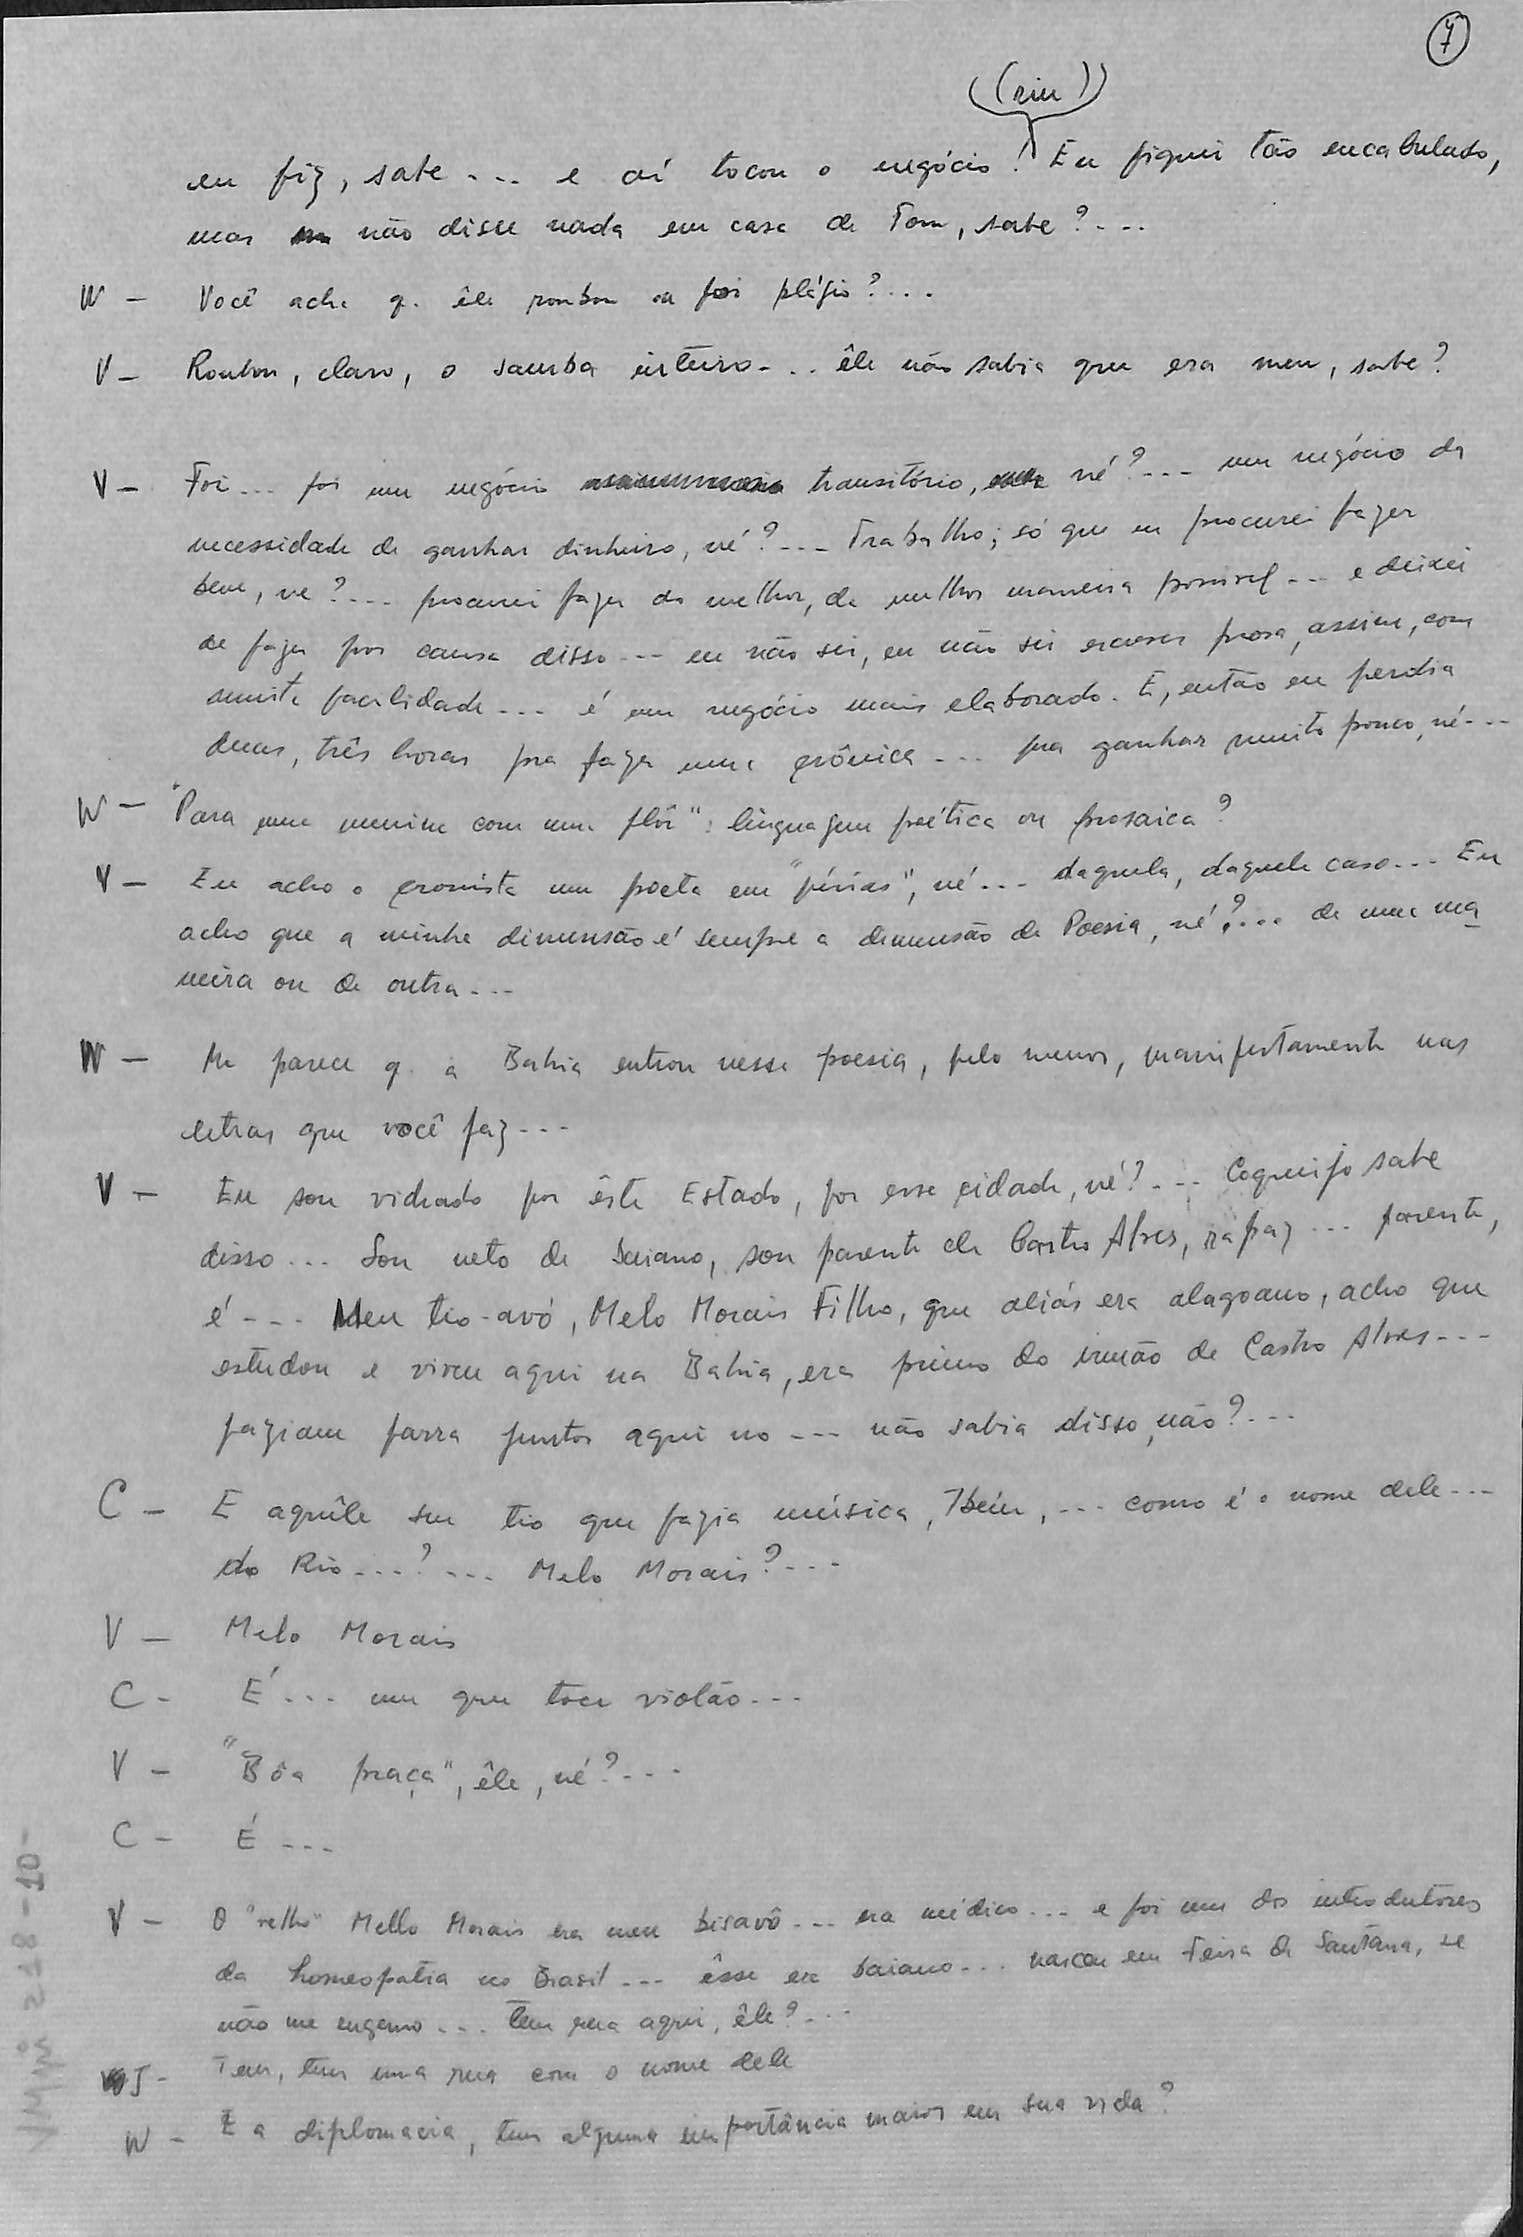 7
((riu))
eu fiz, sabe... e aí tocou o negócio! Eu fiquei tão encabulado,
mas não disse nada em casa de Tom, sabe?...
W - Você acha q. êle roubou ou foi plágio?...
V - Roubou, claro, o samba inteiro... êle não sabia que era meu, sabe?
V - Foi... foi um negócio transitório, né?... um negócio da
necessidade de ganhar dinheiro, né?... Trabalho; só que eu procurei fazer
bem, né?... procurei fazer do melhor, da melhor maneira possível... e deixei
de fazer por causa disso... eu não sei, eu não sei escrever prosa, assim, com
muita facilidade... é um negócio mais elaborado. E, então eu perdia
duas, três horas pra fazer uma crônica... pra ganhar muito pouco, né...
W - "Para uma menina com uma flôr": linguagem poética ou prosaica?
V - Eu acho o cronista um poeta em "férias", né... daquela, daquele caso... Eu
acho que a minha dimensão é sempre a dimensão da Poesia, né?... de uma ma
neira ou de outra...
W - Me parece q. a Bahia entrou nessa poesia, pelo menos, manifestamente nas
letras que você faz...
V - Eu sou vidrado por êste Estado, por esse cidade, né?... Coqueijo sabe
disso... Sou neto de baiano, sou parente de Castro Alves, rapaz... parente,
é... Meu tio-avó, Melo Morais Filho, que aliás era alagoano, acho que
estudou e viveu aqui na Bahia, era primo do irmão de Castro Alves...
faziam farra juntos aqui no... não sabia disso, não?...
C - E aquêle seu tio que fazia música, Tbém,... como é o nome dele...
do Rio...?... Melo Morais?...
V - Melo Morais
C - É... um que toca violão...
V - "Bôa praça", êle, né?...
C - É...
V - O "velho" Mello Morais era meu bisavô... era médico... e foi um dos introdutores
da homeopatia no Brasil... êsse era baiano... nasceu em Feira de Santana, se
não me engano... tem rua aqui, êle?...
J - Tem, tem uma rua com o nome dele
W - E a diplomacia, tem alguma importância maior em sua vida?